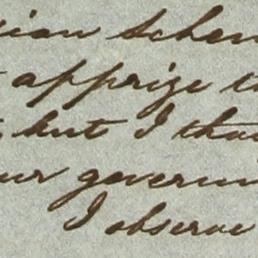 ian schem
apprize th
but I thou
ur governm
I observe